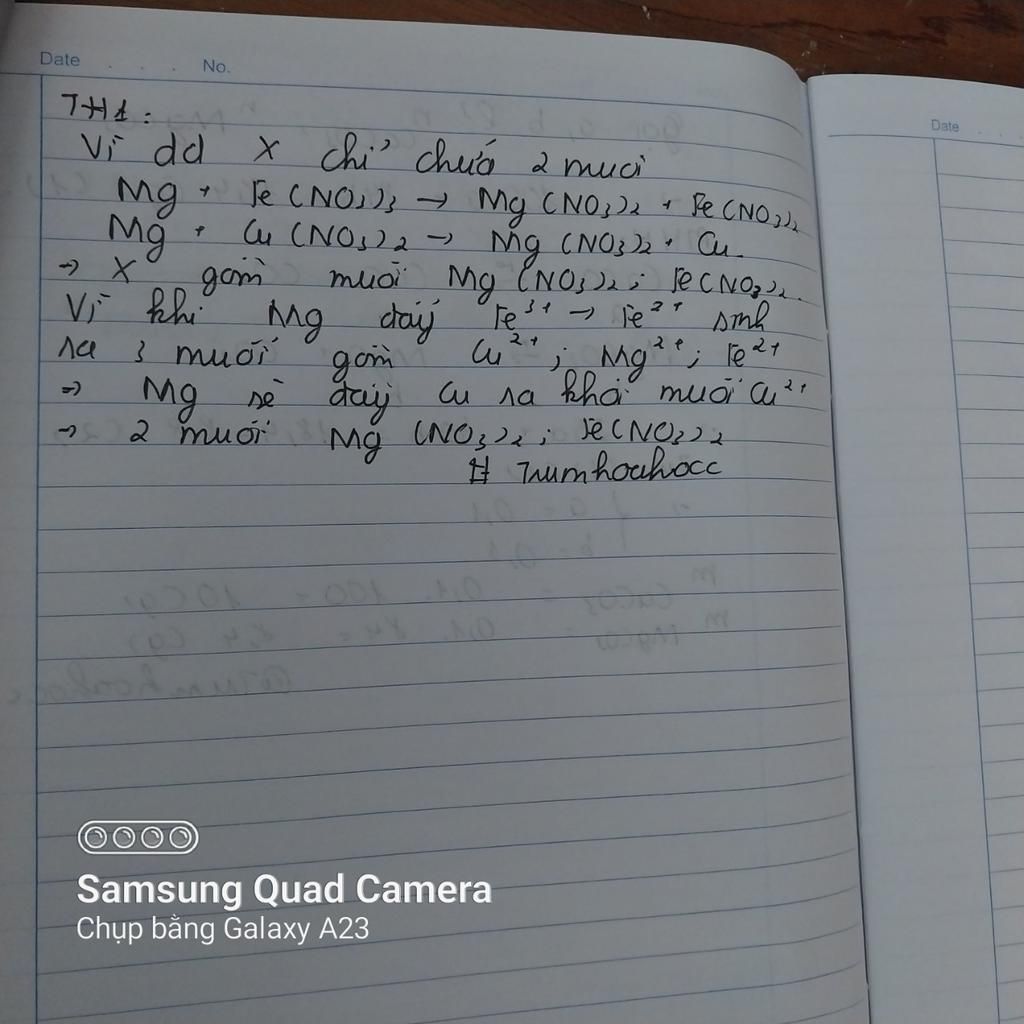 Date . . . . No.
TH1:
Vì dd X chỉ chứa 2 muối
Mg + Fe(NO3)3 → Mg(NO3)2 + Fe(NO3)2
Mg + Cu(NO3)2 → Mg(NO3)2 + Cu.
→ X gồm muối Mg(NO3)2; Fe(NO3)2.
Vì khi Mg đẩy Fe³⁺ → Fe²⁺ sinh
ra 3 muối gồm Cu²⁺; Mg²⁺; Fe²⁺
=> Mg sẽ đẩy Cu ra khỏi muối Cu²⁺
→ 2 muối Mg(NO3)2; Fe(NO3)2
# Trumhoahocc
Date . . .
Samsung Quad Camera
Chụp bằng Galaxy A23